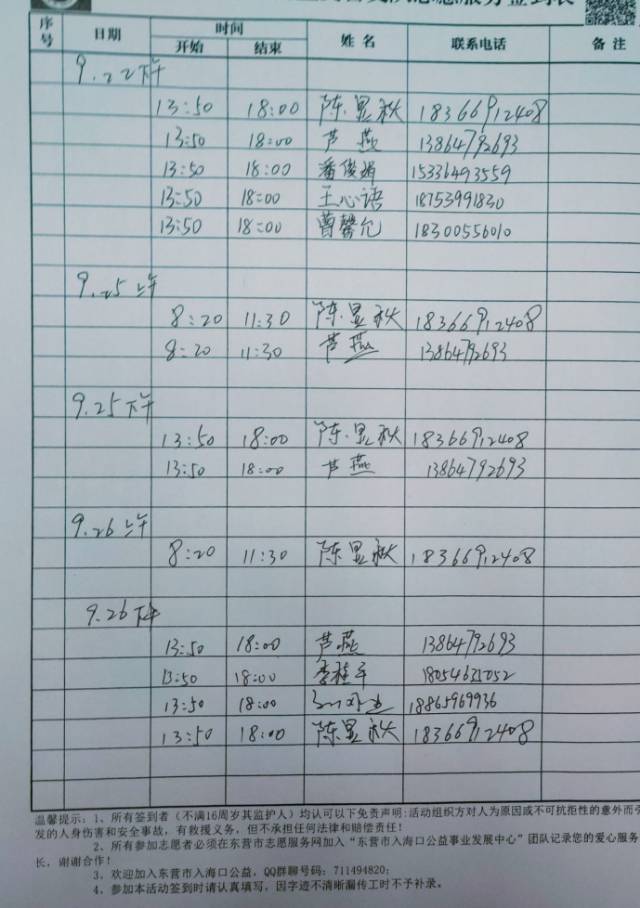 志愿服务签到表
序号 日期 时间 姓名 联系电话 备注
开始 结束
9.22下午
13:50 18:00 陈显秋 18366912408
13:50 18:00 芦燕 13864792693
13:50 18:00 潘俊娟 15336493559
13:50 18:00 王心语 18753991830
13:50 18:00 曹馨允 18300556010
9.25上午
8:20 11:30 陈显秋 18366912408
8:20 11:30 芦燕 13864792693
9.25下午
13:50 18:00 陈显秋 18366912408
13:50 18:00 芦燕 13864792693
9.26上午
8:20 11:30 陈显秋 18366912408
9.26下午
13:50 18:00 芦燕 13864792693
13:50 18:00 李桂平
13:50 18:00 18865969936
13:50 18:00 陈显秋 18366912408
温馨提示:1、所有签到者(不满16周岁其监护人)均认可以下免责声明:活动组织方对人为原因或不可抗拒性的意外而引
发的人身伤害和安全事故,有救援义务,但不承担任何法律和赔偿责任!
2、所有参加志愿者必须在东营市志愿服务网加入“东营市入海口公益事业发展中心”团队记录您的爱心服务
长,谢谢合作!
3、欢迎加入东营市入海口公益,QQ群聊号码:711494820;
4、参加本活动签到时请认真填写,因字迹不清晰漏传工时不予补录。